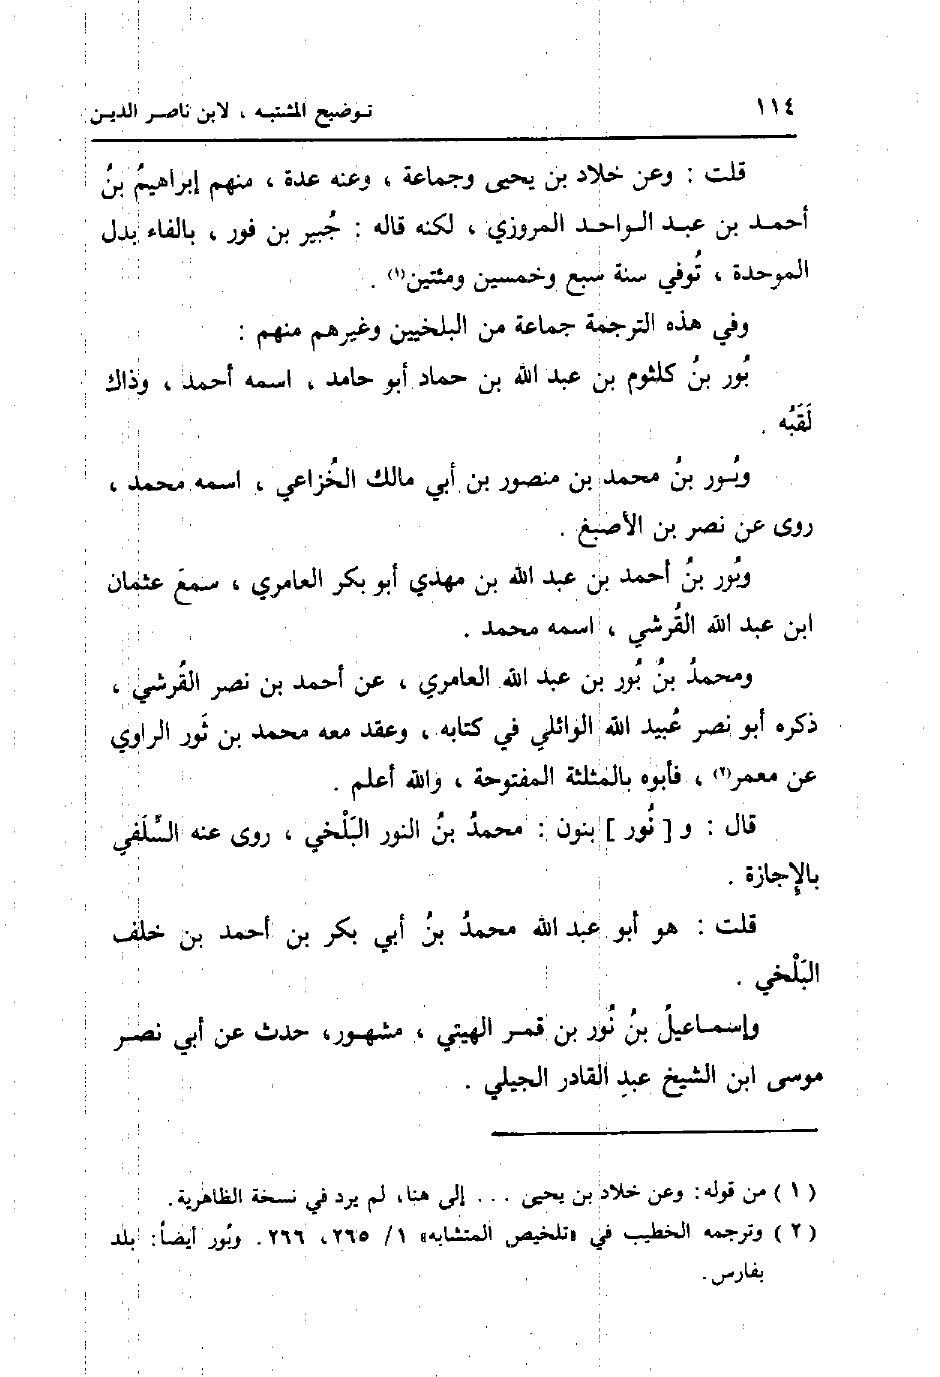 ١١٤
توضيح المشتبه ، لابن ناصر الدين
قلت : وعن خلاد بن يحيى وجماعة ، وعنه عدة ، منهم إبراهيمُ بنُ
أحمد بن عبد الواحد المروزي ، لكنه قاله : جُبير بن فور ، بالفاء بدل
الموحدة ، تُوفي سنة سبع وخمسين ومئتين(١) .
وفي هذه الترجمة جماعة من البلخيين وغيرهم منهم :
بُور بنُ كلثوم بن عبد الله بن حماد أبو حامد ، اسمه أحمد ، وذاك
لَقَبُه .
وبُور بنُ محمد بن منصور بن أبي مالك الخُزاعي ، اسمه محمد ،
روى عن نصر بن الأصبغ .
وبُور بنُ أحمد بن عبد الله بن مهدي أبو بكر العامري ، سمعَ عثمان
ابن عبد الله القُرشي ، اسمه محمد .
ومحمدُ بنُ بُور بن عبد الله العامري ، عن أحمد بن نصر القُرشي ،
ذكره أبو نصر عُبيد الله الوائلي في كتابه ، وعقد معه محمد بن ثَور الراوي
عن معمر(٢) ، فأبوه بالمثلثة المفتوحة ، والله أعلم .
قال : و [ نُور ] بنون : محمدُ بنُ النور البَلْخي ، روى عنه السِّلَفي
بالإِجازة .
قلت : هو أبو عبد الله محمدُ بنُ أبي بكر بن أحمد بن خلف
البَلْخي .
وإسماعيلُ بنُ نُور بن قمر الهيتي ، مشهور، حدث عن أبي نصر
موسى ابن الشيخ عبدِ القادر الجيلي .
( ١ ) من قوله: وعن خلاد بن يحيى ... إلى هنا، لم يرد في نسخة الظاهرية.
( ٢ ) وترجمه الخطيب في «تلخيص المتشابه» ١/ ٢٦٥، ٢٦٦. وبُور أيضاً: بلد
بفارس.